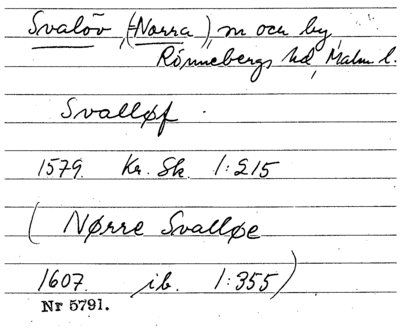 Svalöv, (Norra), sn och by,
Rönnebergs hd, Malm l.
Svalløf.
1579. Kr. Sk. 1:215
(Nørre Svalløe
1607. ib. 1:355)
Nr 5791.